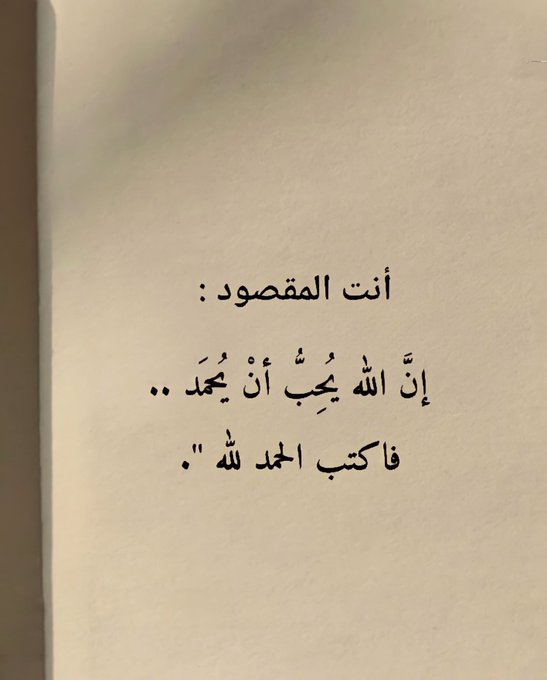 أنت المقصود :
إنَّ الله يُحِبُّ أنْ يُحمَد ..
فاكتب الحمد لله ".